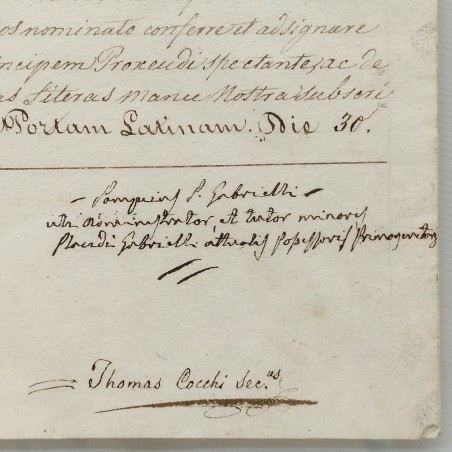 os nominato conferre et adsignare
incipem Proxeudi spectantes, ac de
as Literas manu Nostra subscri
Portam Latinam. Die 30.
Pompeius P. Gabrielli
uti Administrator, et tutor minoris
Placidi Gabrielli attualis Possessoris Primogeniturę
Thomas Cocchi Sec.us